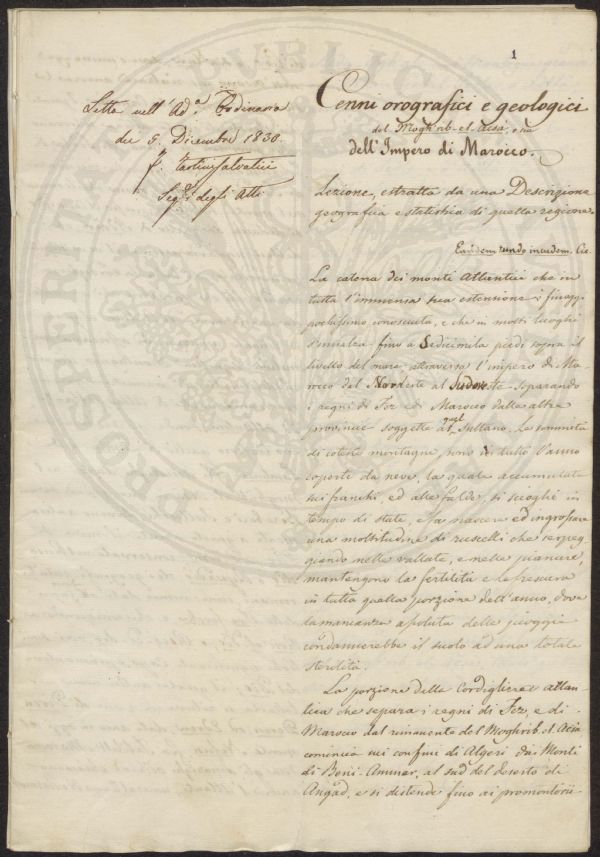 1
Letta nell' Ad.ª Ordinaria
de 5. Dicembre 1830.
f. Tartini Salvatici
Seg. degli Atti
Cenni orografici e geologici
del Moghrib-el-Acsà, o sia
dell'Impero di Marocco.
Lezione, estratta da una Descrizione
geografica e statistica di quella regione.
Eamdem tundo incudem. Cic.
La catena dei monti Atlantici che in
tutta l'immensa sua estensione è finqui
pochissimo conosciuta, e che in molti luoghi
s'innalza fino a Sedicimila piedi sopra il
livello del mare attraversa l'impero di Ma-
rocco dal Nordeste al Sudoveste separando
i regni di Fez ed Marocco dalle altre
provincie soggette a quel Sultano. Le sommità
di coteste montagne, sono in tutto l'anno
coperte da neve, la quale accumulata
sui fianchi, ed alle falde, si scioglie in
tempo di state, e fa nascere ed ingrossare
una moltitudine di ruscelli che serpeg
giando nelle vallate, e nelle pianure,
mantengono la fertilità e la frescura
in tutta quella porzione dell'anno, dove
la mancanza assoluta delle pioggie
condannerebbe il suolo ad una totale
sterilità.
La porzione della Cordigliera atlan-
tica che separa i regni di Fez, e di
Marocco dal rimanente del Moghrib-el-Acsà
comincia nei confini di Algeri dai Monti
di Beni-Ammer, al sud del deserto di
Angad, e si distende fino ai promontorii